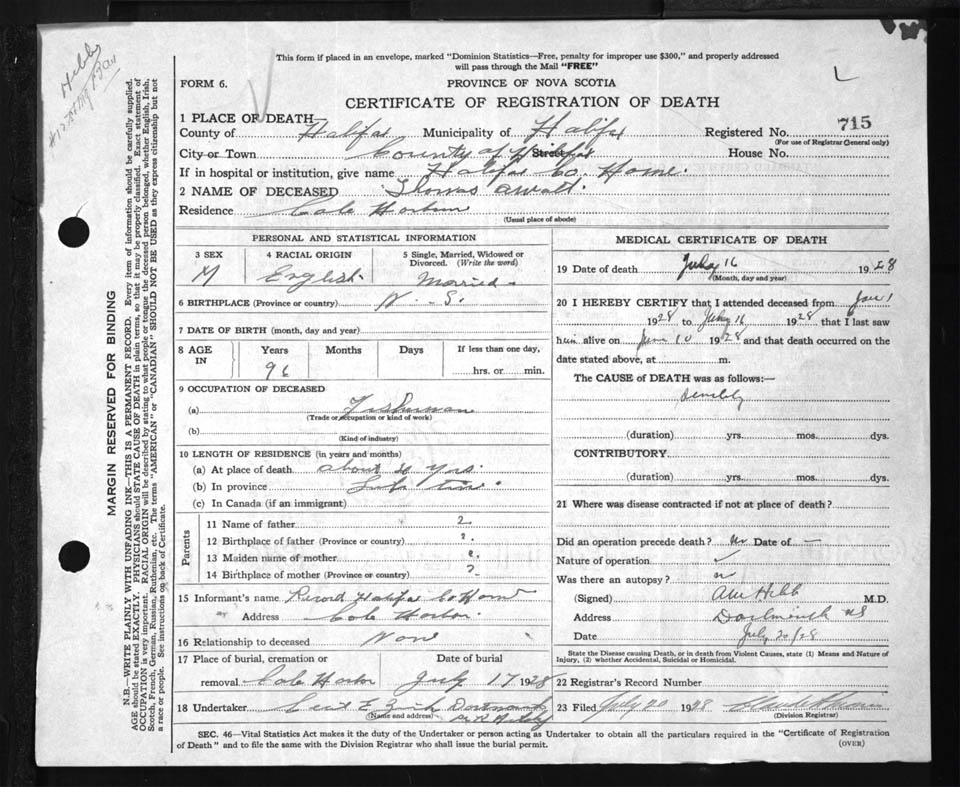 This form if placed in an envelope, marked "Dominion Statistics—Free, penalty for improper use $300," and properly addressed
will pass through the Mail "FREE"
FORM 6.
PROVINCE OF NOVA SCOTIA
CERTIFICATE OF REGISTRATION OF DEATH
1 PLACE OF DEATH
County of Halifax Municipality of Halifax Registered No. 715
(For use of Registrar General only)
City or Town County of Halifax Street House No.
If in hospital or institution, give name Halifax Co. Home.
2 NAME OF DECEASED Thomas
Residence Cole Harbour
(Usual place of abode)
PERSONAL AND STATISTICAL INFORMATION
3 SEX M
4 RACIAL ORIGIN English.
5 Single, Married, Widowed or Divorced. (Write the word) Married
6 BIRTHPLACE (Province or country) N.S.
7 DATE OF BIRTH (month, day and year)
8 AGE IN Years Months Days If less than one day,
96 hrs. or min.
9 OCCUPATION OF DECEASED
(a) Fisherman
(Trade or occupation or kind of work)
(b)
(Kind of industry)
10 LENGTH OF RESIDENCE (in years and months)
(a) At place of death about 20 yrs.
(b) In province Life time
(c) In Canada (if an immigrant)
Parents
11 Name of father ?
12 Birthplace of father (Province or country) ?
13 Maiden name of mother ?
14 Birthplace of mother (Province or country) ?
15 Informant's name Record Halifax Co Home
Address Cole Harbor
16 Relationship to deceased None
17 Place of burial, cremation or removal Cole Harbor Date of burial July 17 1928
18 Undertaker Zink Dartmouth
(Name and address)
MEDICAL CERTIFICATE OF DEATH
19 Date of death July 16 1928
(Month, day and year)
20 I HEREBY CERTIFY that I attended deceased from Jan 1
1928 to July 16 1928 that I last saw
him alive on June 10 1928 and that death occurred on the
date stated above, at m.
The CAUSE of DEATH was as follows:—
Senility
(duration) yrs. mos. dys.
CONTRIBUTORY
(duration) yrs. mos. dys.
21 Where was disease contracted if not at place of death?
Did an operation precede death? no Date of —
Nature of operation
Was there an autopsy? no
(Signed) Hebb M.D.
Address Dartmouth NS
Date July 20/28
State the Disease causing Death, or in death from Violent Causes, state (1) Means and Nature of
Injury, (2) whether Accidental, Suicidal or Homicidal.
22 Registrar's Record Number
23 Filed July 20 1928
(Division Registrar)
SEC. 46—Vital Statistics Act makes it the duty of the Undertaker or person acting as Undertaker to obtain all the particulars required in the "Certificate of Registration
of Death" and to file the same with the Division Registrar who shall issue the burial permit.
(OVER)
MARGIN RESERVED FOR BINDING
N.B.—WRITE PLAINLY WITH UNFADING INK—THIS IS A PERMANENT RECORD. Every item of information should be carefully supplied.
AGE should be stated EXACTLY. PHYSICIANS should STATE CAUSE OF DEATH in plain terms, so that it may be properly classified. Exact statement of
OCCUPATION is very important. RACIAL ORIGIN will be described by stating to what people or tongue the deceased person belonged, whether English, Irish,
Scotch, French, German, Russian, Ruthenian, etc. The terms "AMERICAN" or "CANADIAN" SHOULD NOT BE USED as they express citizenship but not
a race or people. See instructions on back of Certificate.
Hebb